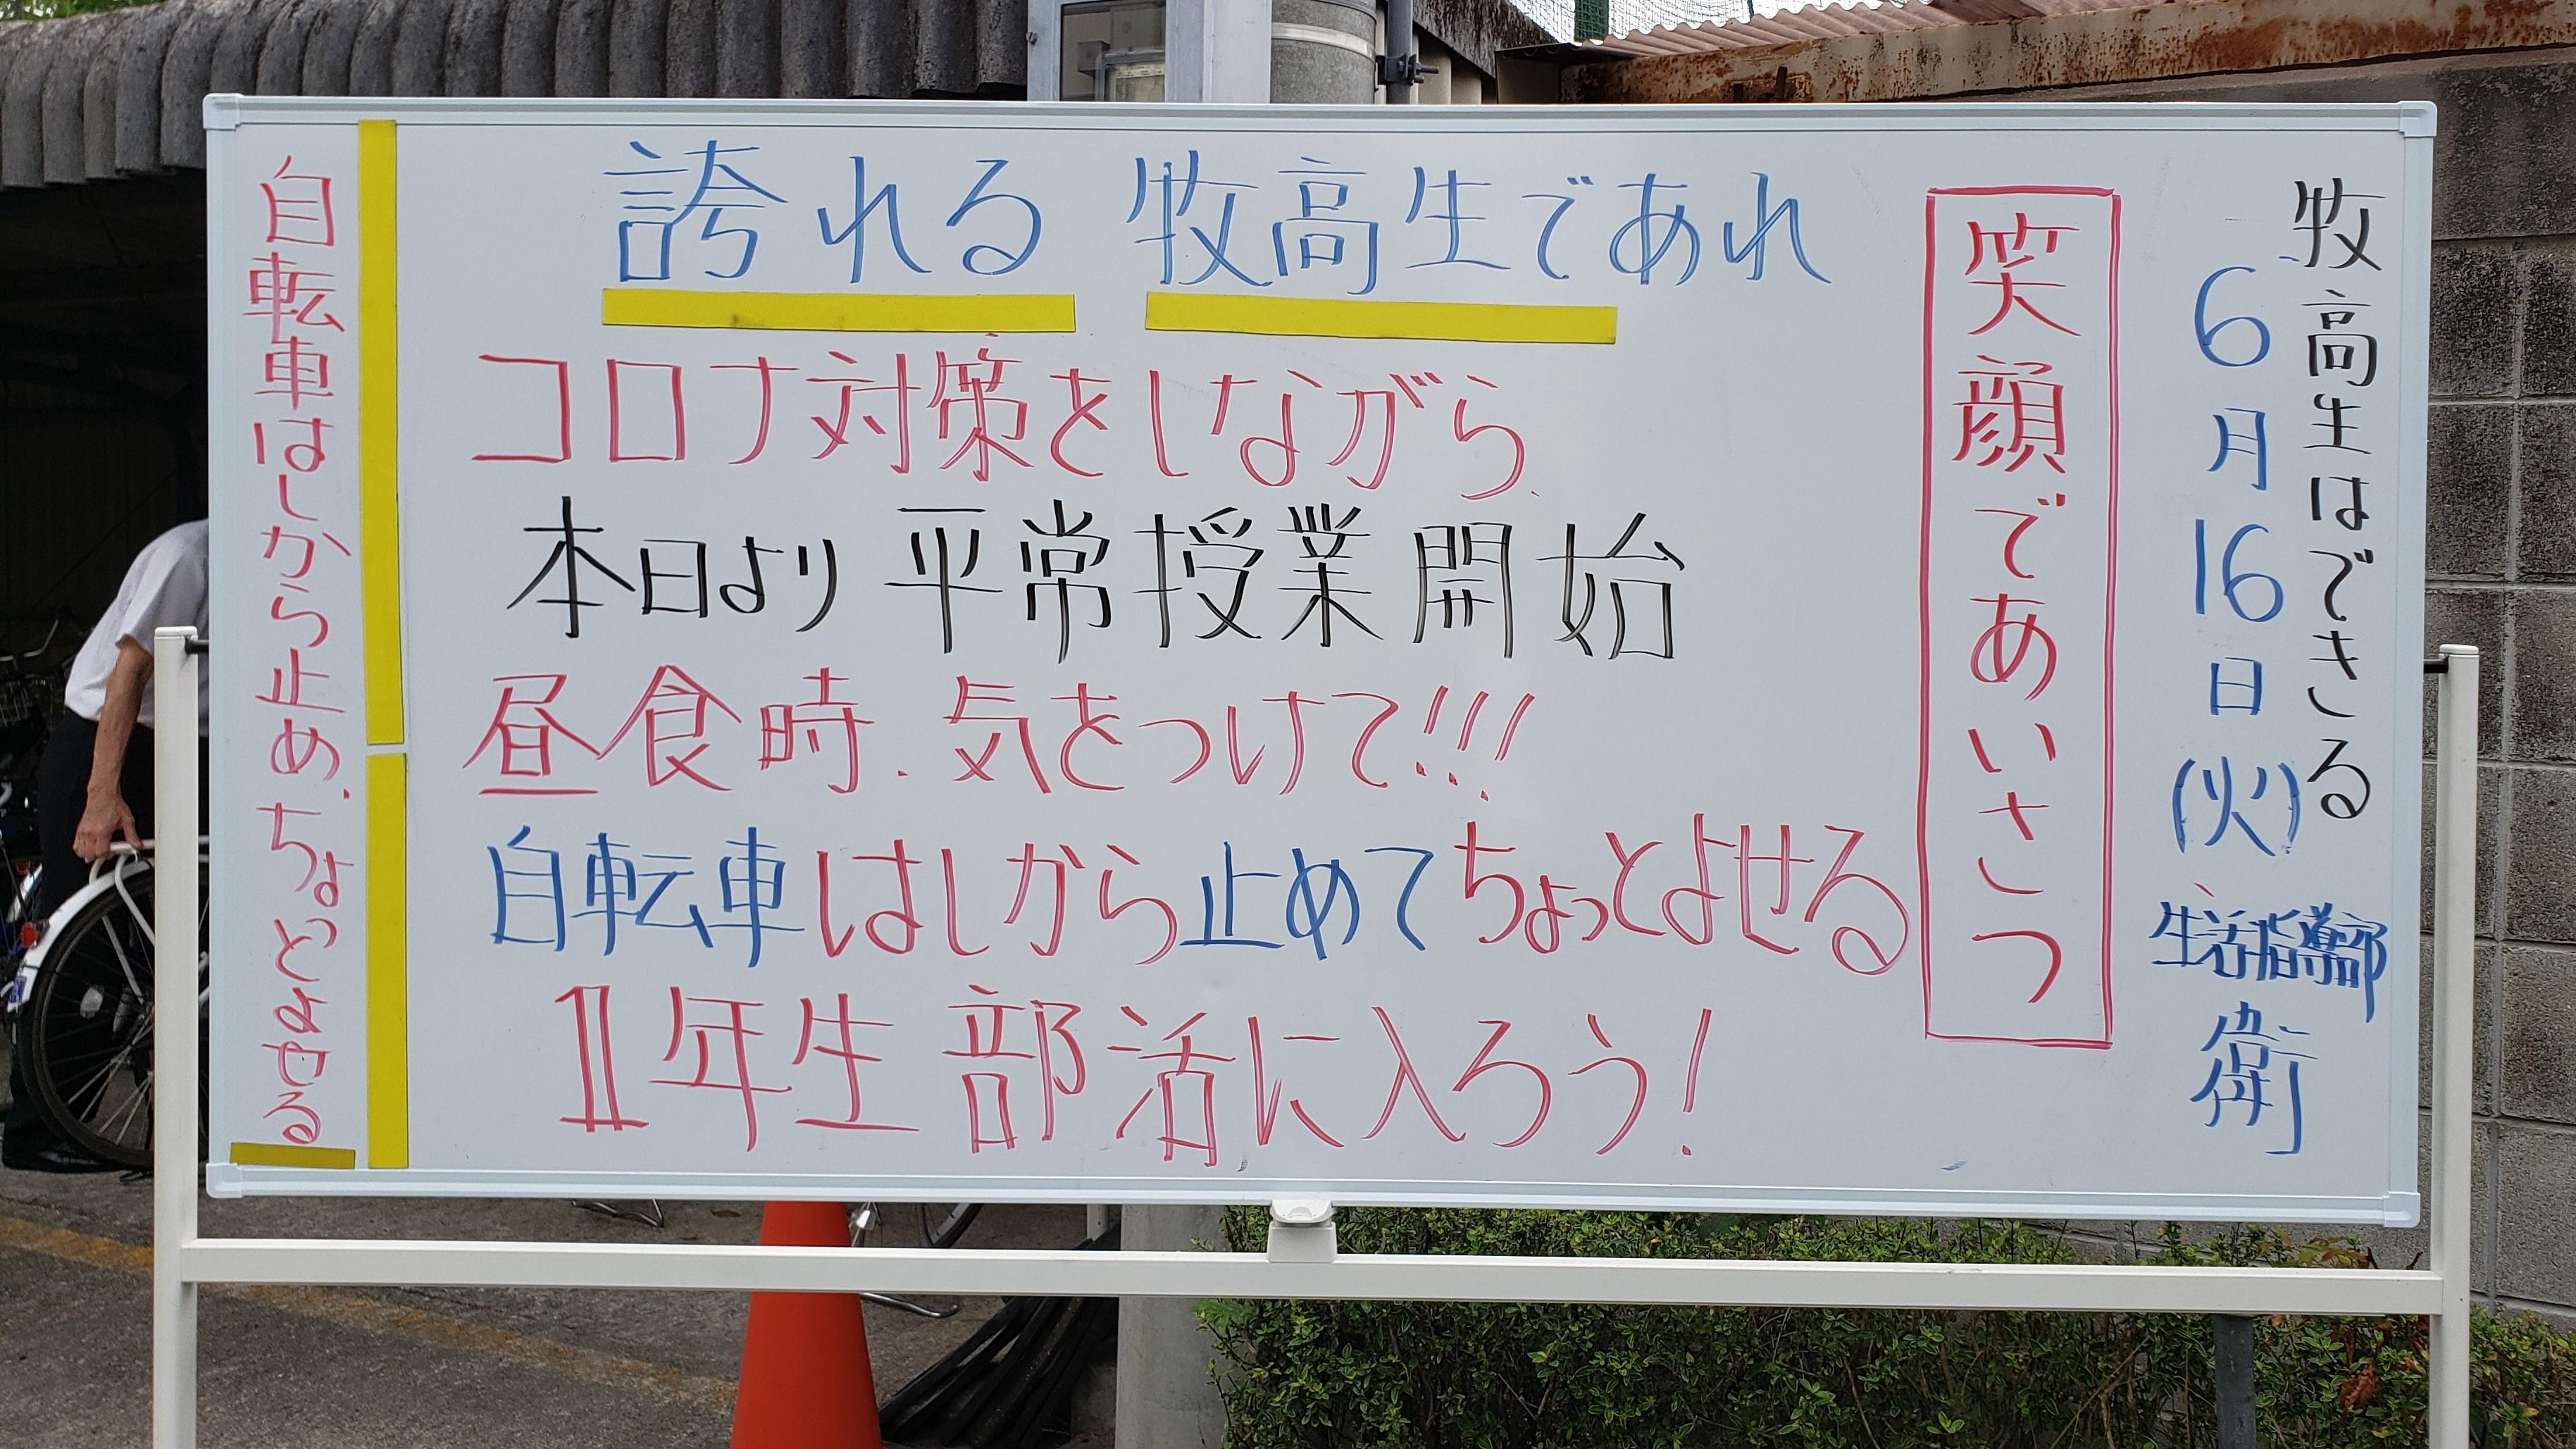 牧高生はできる
6月16日(火)
生活指導部
衛
笑顔であいさつ
誇れる 牧高生であれ
コロナ対策をしながら、
本日より 平常授業開始
昼食時、気をつけて!!!
自転車はしから止めてちょっとよせる
1年生 部活に入ろう!
自転車はしから止め、ちょっとよせる